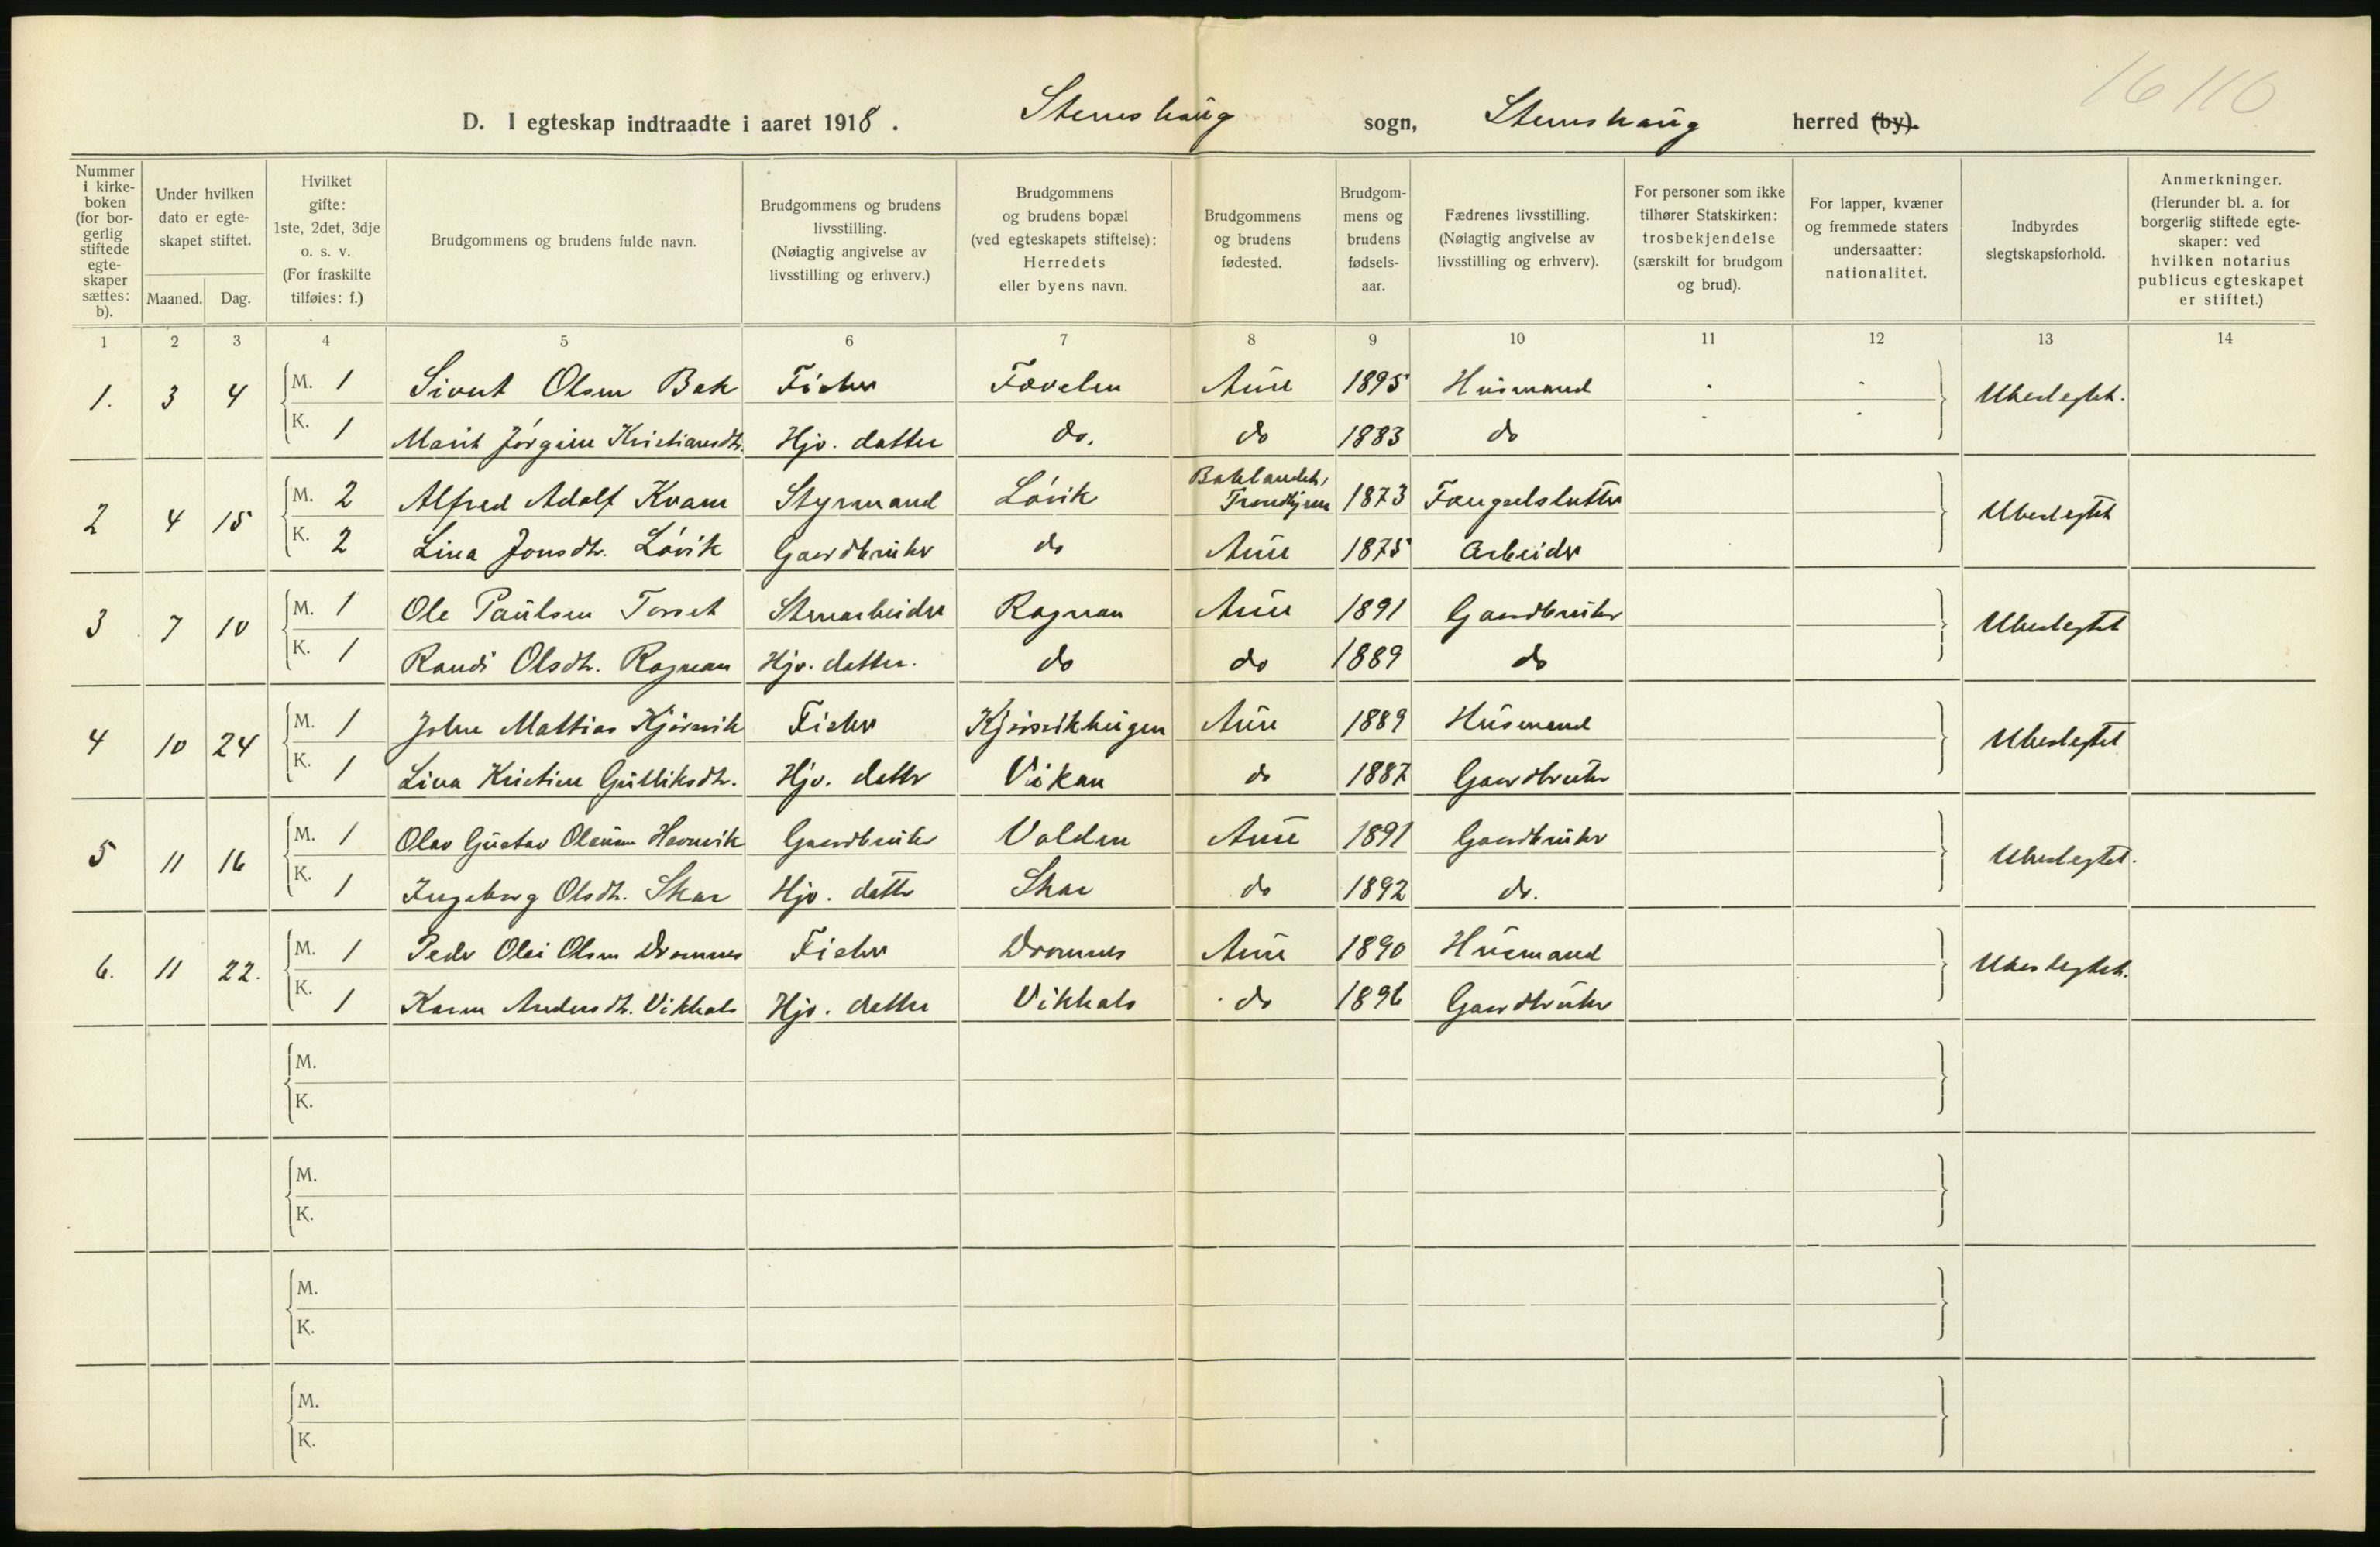 16 110
D. I egteskap indtraadte i aaret 1918. Stemshaug sogn, Stemshaug herred (by).
Nummer i kirkeboken (for borgerlig stiftede egteskaper sættes: b). Under hvilken dato er egteskapet stiftet. Maaned. Dag. Hvilket gifte: 1ste, 2det, 3dje o. s. v. (For fraskilte tilføies: f.) Brudgommens og brudens fulde navn. Brudgommens og brudens livsstilling. (Nøiagtig angivelse av livsstilling og erhverv.) Brudgommens og brudens bopæl (ved egteskapets stiftelse): Herredets eller byens navn. Brudgommens og brudens fødested. Brudgommens og brudens fødselsaar. Fædrenes livsstilling. (Nøiagtig angivelse av livsstilling og erhverv). For personer som ikke tilhører Statskirken: trosbekjendelse (særskilt for brudgom og brud). For lapper, kvæner og fremmede staters undersaatter: nationalitet. Indbyrdes slegtskapsforhold. Anmerkninger. (Herunder bl. a. for borgerlig stiftede egteskaper: ved hvilken notarius publicus egteskapet er stiftet.)
1 2 3 4 5 6 7 8 9 10 11 12 13 14
1. 3 4 M. 1 Sivert Olsen Bak Fisker Fovelen Aure 1895 Husmand Ubeslegtet.
K. 1 Marit Jørgine Kristiansdtr. Hjv. datter do. do 1883 do
2 4 15 M. 2 Alfred Adolf Kvam Styrmand Løvik Baklandet, Trondhjem 1873 Fængselslutter Ubeslegtet
K. 2 Lina Jonsdtr. Løvik Gaardbruker do Aure 1875 Arbeider
3 7 10 M. 1 Ole Paulsen Torset Stenarbeider Rognan Aure 1891 Gaardbruker Ubeslegtet
K. 1 Randi Olsdtr. Rognan Hjv. datter. do do 1889 do
4 10 24 M. 1 Johan Mattias Kjørsvik Fisker Kjørsvikbugen Aure 1889 Husmand Ubeslegtet
K. 1 Lina Kristine Gulliksdtr. Hjv. datter Vikan do 1887 Gaardbruker
5 11 16 M. 1 Olav Gustav Havnvik Gaardbruker Valden Aure 1891 Gaardbruker Ubeslegtet.
K. 1 Ingeborg Olsdtr. Skar Hjv. datter Skar do 1892 do.
6. 11 22. M. 1 Peder Olai Olsen Dromnes Fisker Dromnes Aure 1890 Husmand Ubeslegtet.
K. 1 Karen Andersdtr. Vikhals Hjv. datter Vikhals do 1896 Gaardbruker
M.
K.
M.
K.
M.
K.
M.
K.